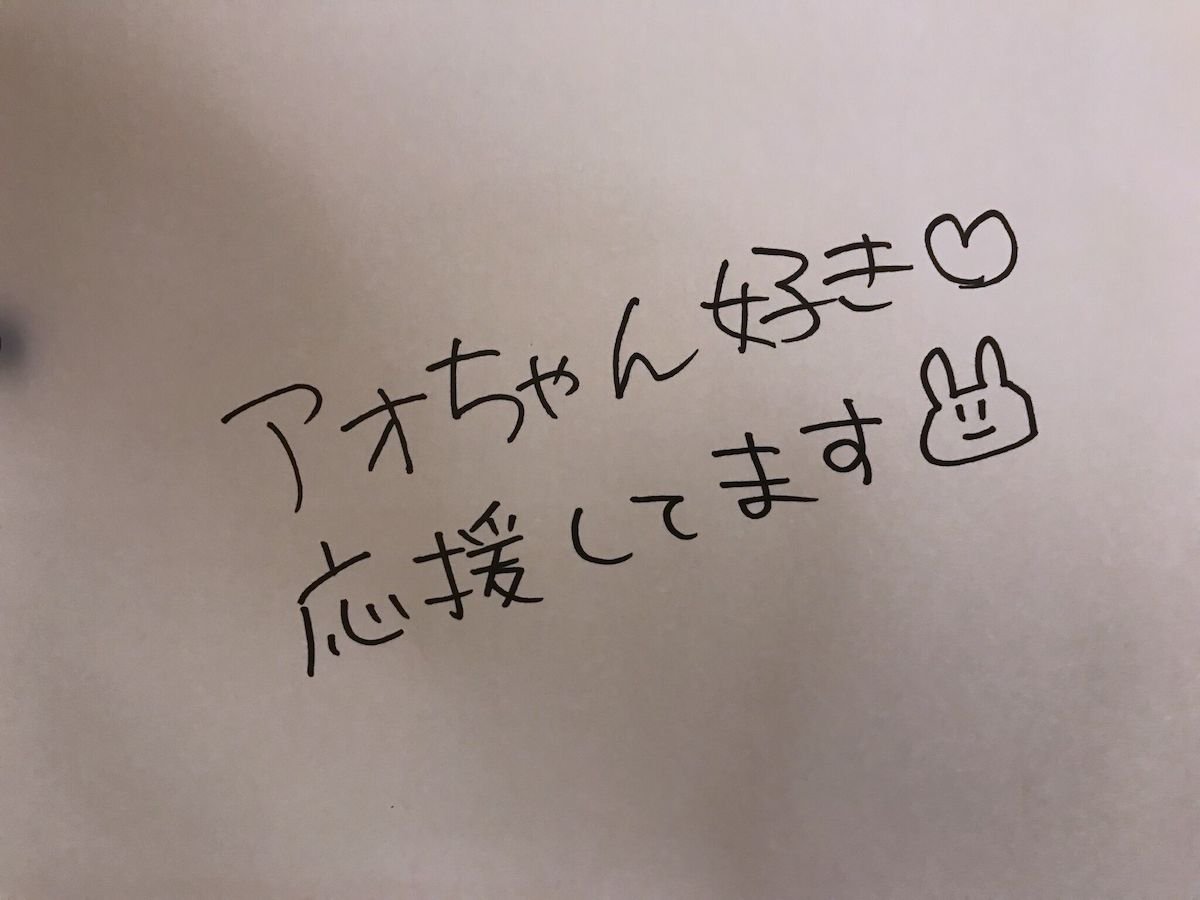 アオちゃん好き♡
応援してます